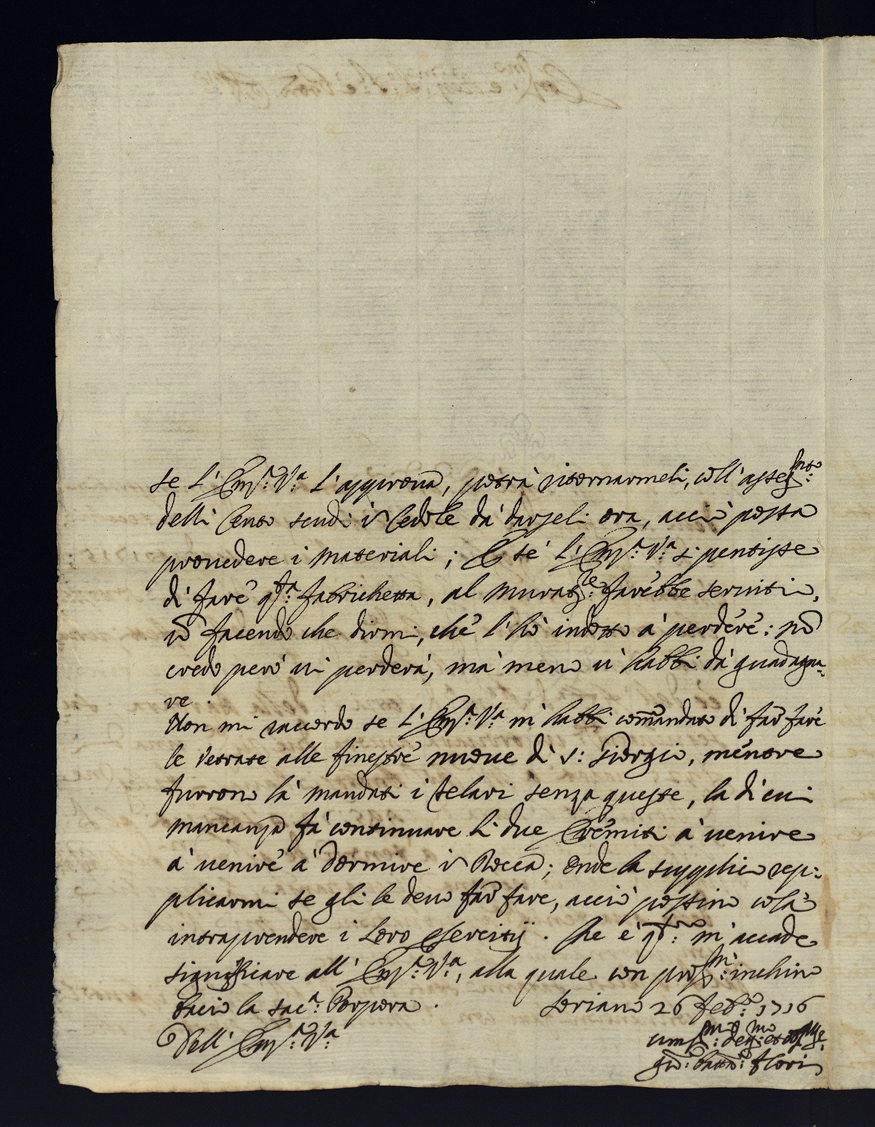 se l'Em.ª V.ª l'approva, potrà ritornarmeli, coll'asseg.mto
delli Cento scudi in Cedole da darseli ora, acciò possa
provedere i materiali; E se l'Em.ª V.ª si pentisse
di fare q.ta fabrichetta, al Murat.re sarebbe servitio,
nõ facendo che dirmi, che l'hò indotto à perdere: nõ
credo però vi perderà, mà meno vi habbi dà guadagna-
re
Non mi raccordo se l'Em.ª V.ª m'habbi commandato di far fare
le vetrate alle finestre nuove di S: Giorgio, mentre
furron là mandati i telari senza queste, la di cui
mancanza fà continuare li due Eremiti à venire
à venire à dormire in Rocca; onde la supplico rep:
plicarmi se gli le devo far fare, acciò possino colà
intraprendere i loro esercitij. Che è q.to m'accade
significare all'Em.ª V.ª, alla quale con prof.mo inchino
bacio la sac.ª Porpora. Soriano 26 feb.º 1716
Dell'Em.ª V.ª
um.mo dev.mo et obl.
Gio: Batta: Flori